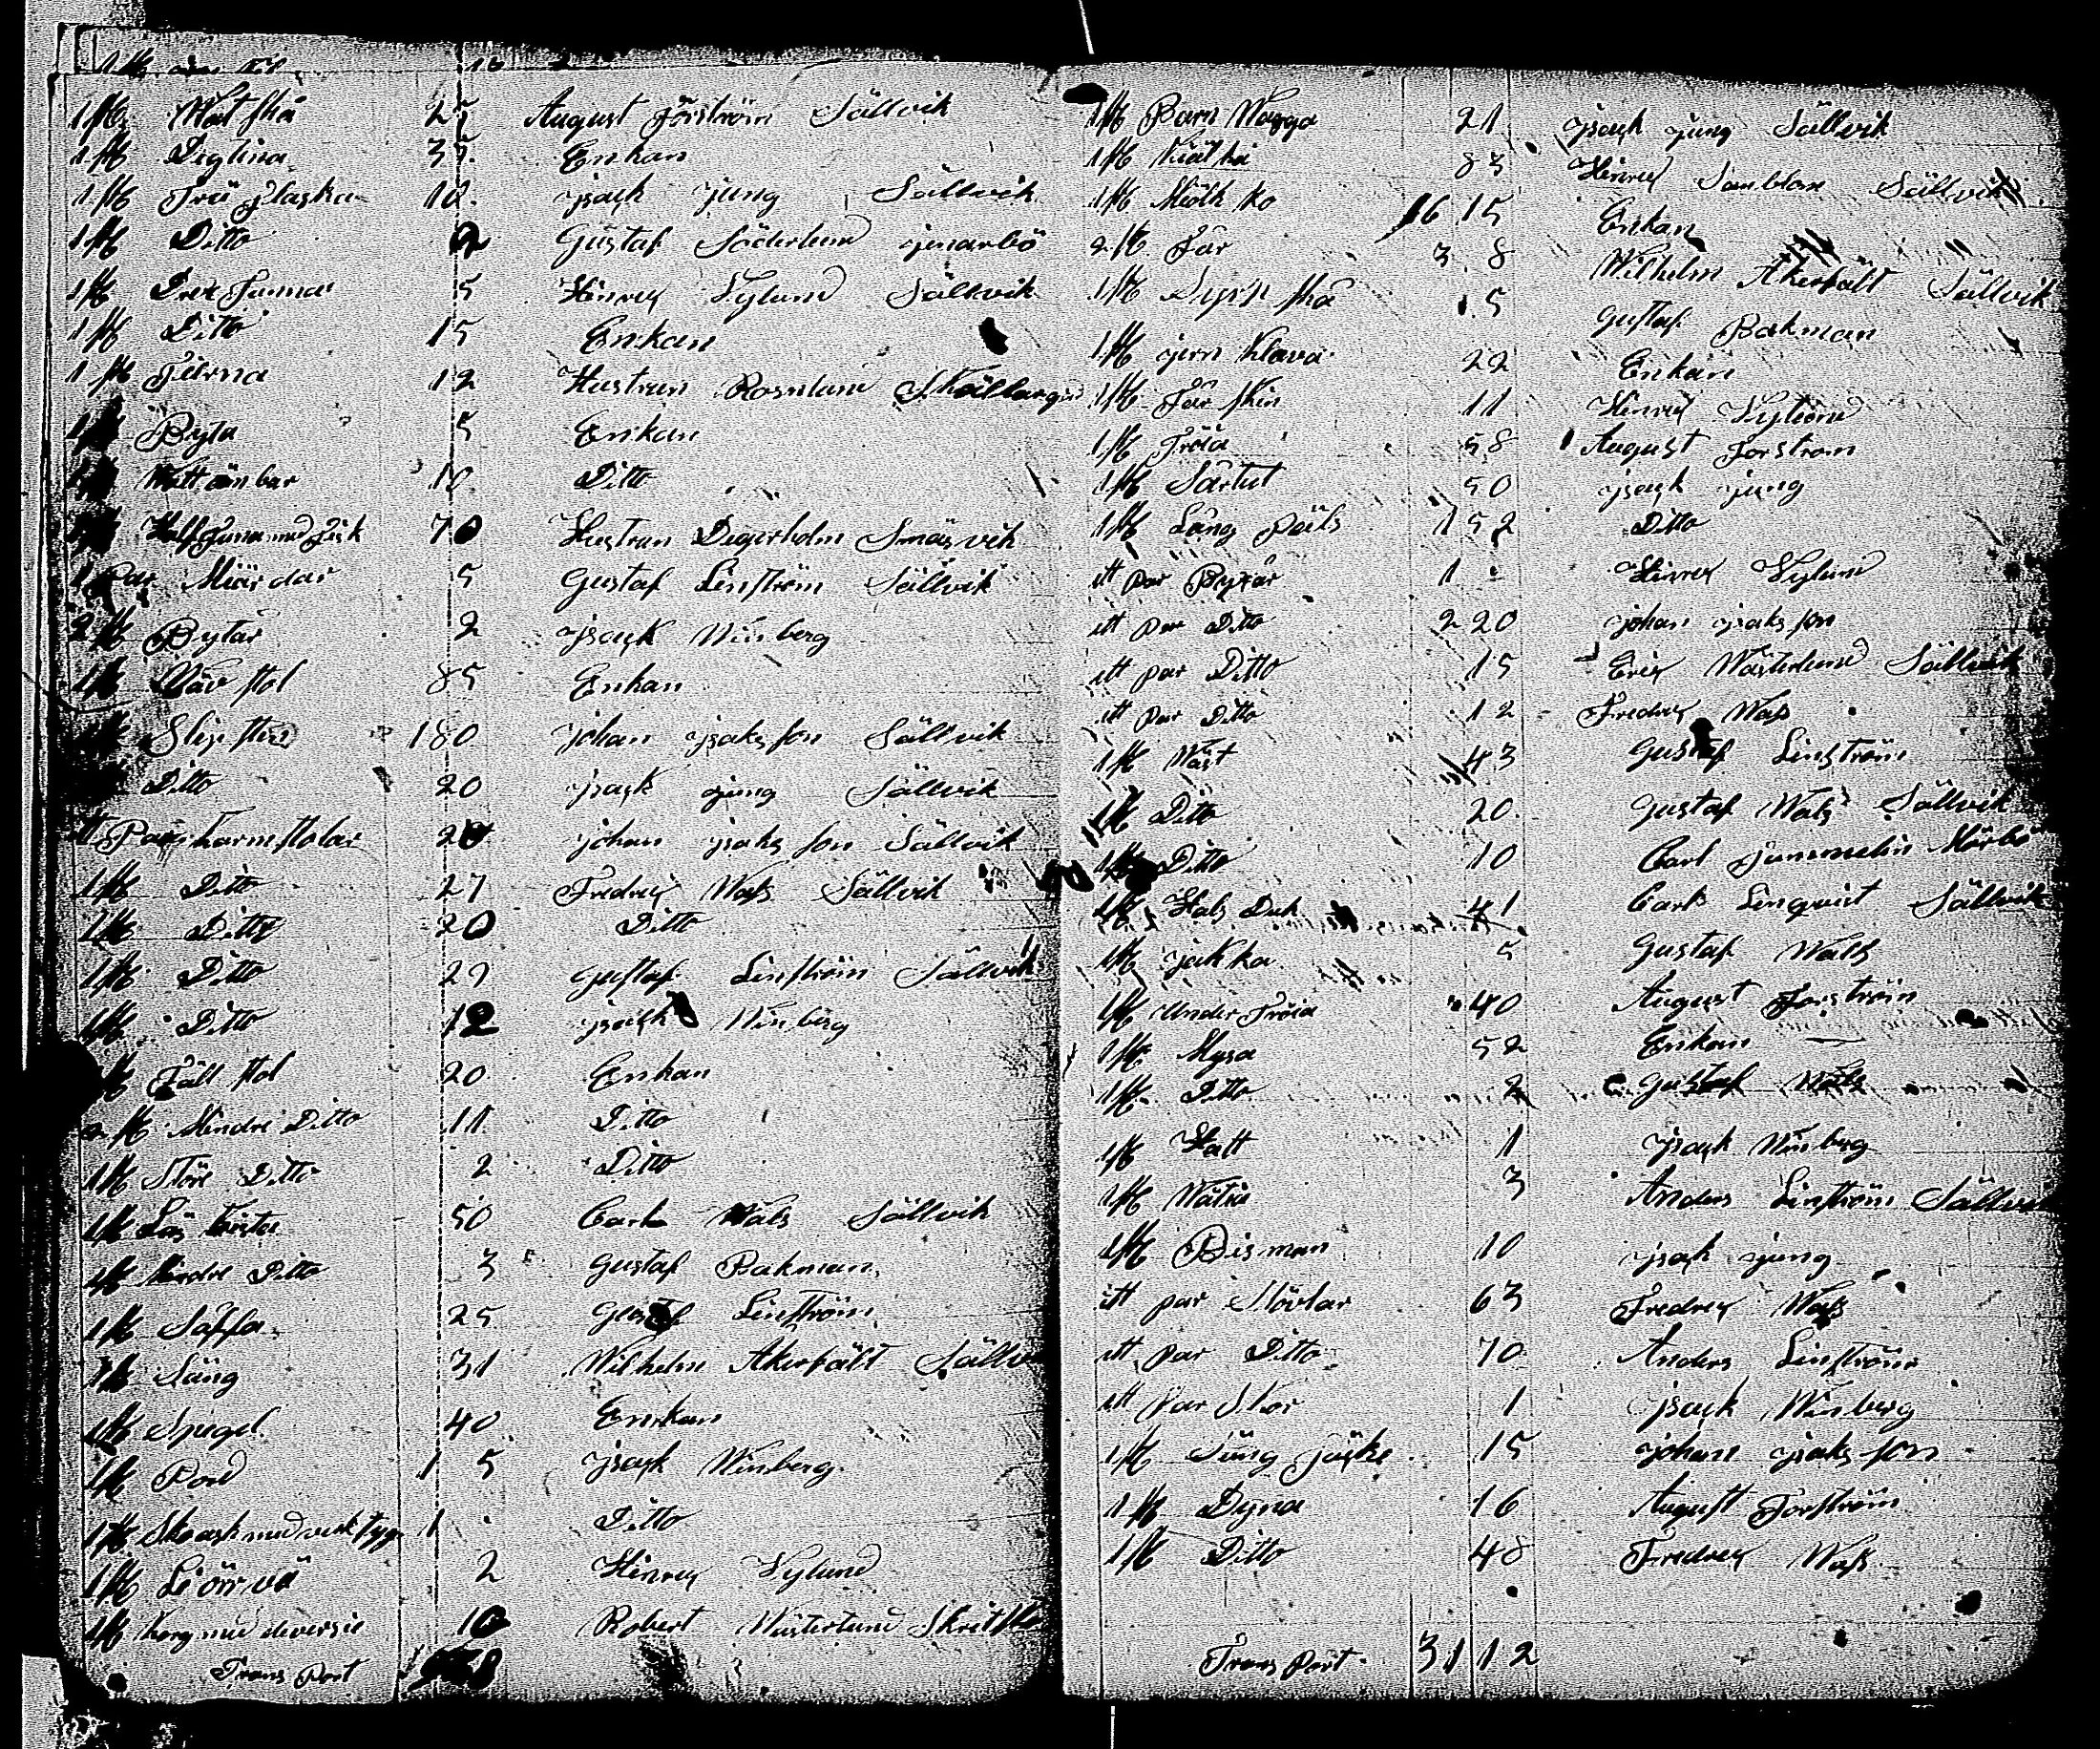 1 st Mat skå 25 August Förström Sällvik
1 st Degtina 35 Enkan
1 st Trä flaska 10 jsack jung Sällvik
1 st Ditto 2 Gustaf Söderlund
1 st Drek Tunna 5 Hinrich Nylund Sällvik
1 st Ditto 15 Enkan
1 st Tierna 12 Hustrun Rosenlund
1 st Byta 5 Enkan
1 st Watt ämbar 10 Ditto
Half Tuna med Fisk 70 Hustrun Degerholm Smäsvik
1 Par Miärdar 5 Gustaf Linström Sällvik
2 st Bytar 2 jsack Winberg
1 st Väv stol 85 Enkan
1 st Slip sten 180 johan jsaks son Sällvik
Ditto 20 jsack jung Sällvik
Par karm stolar 20 johan jsaks son Sällvik
1 st Ditto 27 Fredrich Wass Sällvik
1 st Ditto 20 Ditto
1 st Ditto 27 Gustaf Linström Sällvik
1 st Ditto 12 jsack Winberg
st Fäll stol 20 Enkan
2 st Mindre Ditto 11 Ditto
1 st Störe Ditto 2 Ditto
1 st Lås kista 50 Carl Wals Sällvik
1 st Mindre Ditto 3 Gustaf Bakman
1 st Saffa 25 Gustaf Linström
1 st Säng 31 Wilhelm Åkerfält Sällvik
1 st Spegel 40 Enkan
1 st Bord 1 5 jsack Winberg
1 st Skoask med verktyg 1 Ditto
1 st 2 Hinrich Nylund
1 st korg med diversie 10 Robert Wästerlund
Trans Port
1 st Barn Wagga 21 jsack jung Sällvik
1 st 83 Hinrich Sällvik
1 st Miölk ko 16 15 Enkan
2 st Får 3 8 Wilhelm Åkerfält Sällvik
1 st 5 Gustaf Bakman
1 st jern klava 22 Enkan
1 st Får skin 11 Hinrich Nylund
1 st Tröia 58 August Forström
1 st Sartut 50 jsack jung
1 st Lång Päls 1 52 Ditto
ett par Byxår 1 Hinrich Nylund
ett par Ditto 2 20 johan jsaks son
ett par Ditto 15 Erich Wästerlund Sällvik
ett par Ditto 12 Fredrich Wass
1 st Wäst 43 Gustaf Linström
1 st Ditto 20 Gustaf Wals Sällvik
1 st Ditto 10 Carl
1 st Hals Duk 41 Carl Linqvist Sällvik
1 st jakka 5 Gustaf Wals
1 st Under Tröia 40 August Forström
1 st Myssa 52 Enkan
1 st Ditto 2 Gustaf Wals
1 st Hatt 1 jsack Winberg
1 st 3 Anders Linström Sällvik
1 st Bisman 10 jsack jung
ett par Stövlar 63 Fredrich Wass
ett par Ditto 70 Anders Linström
ett par Skor 1 jsack Winberg
1 st 15 johan jsaks son
1 st Dyna 16 August Forström
1 st Ditto 48 Fredrich Wass
Trans Port 31 12